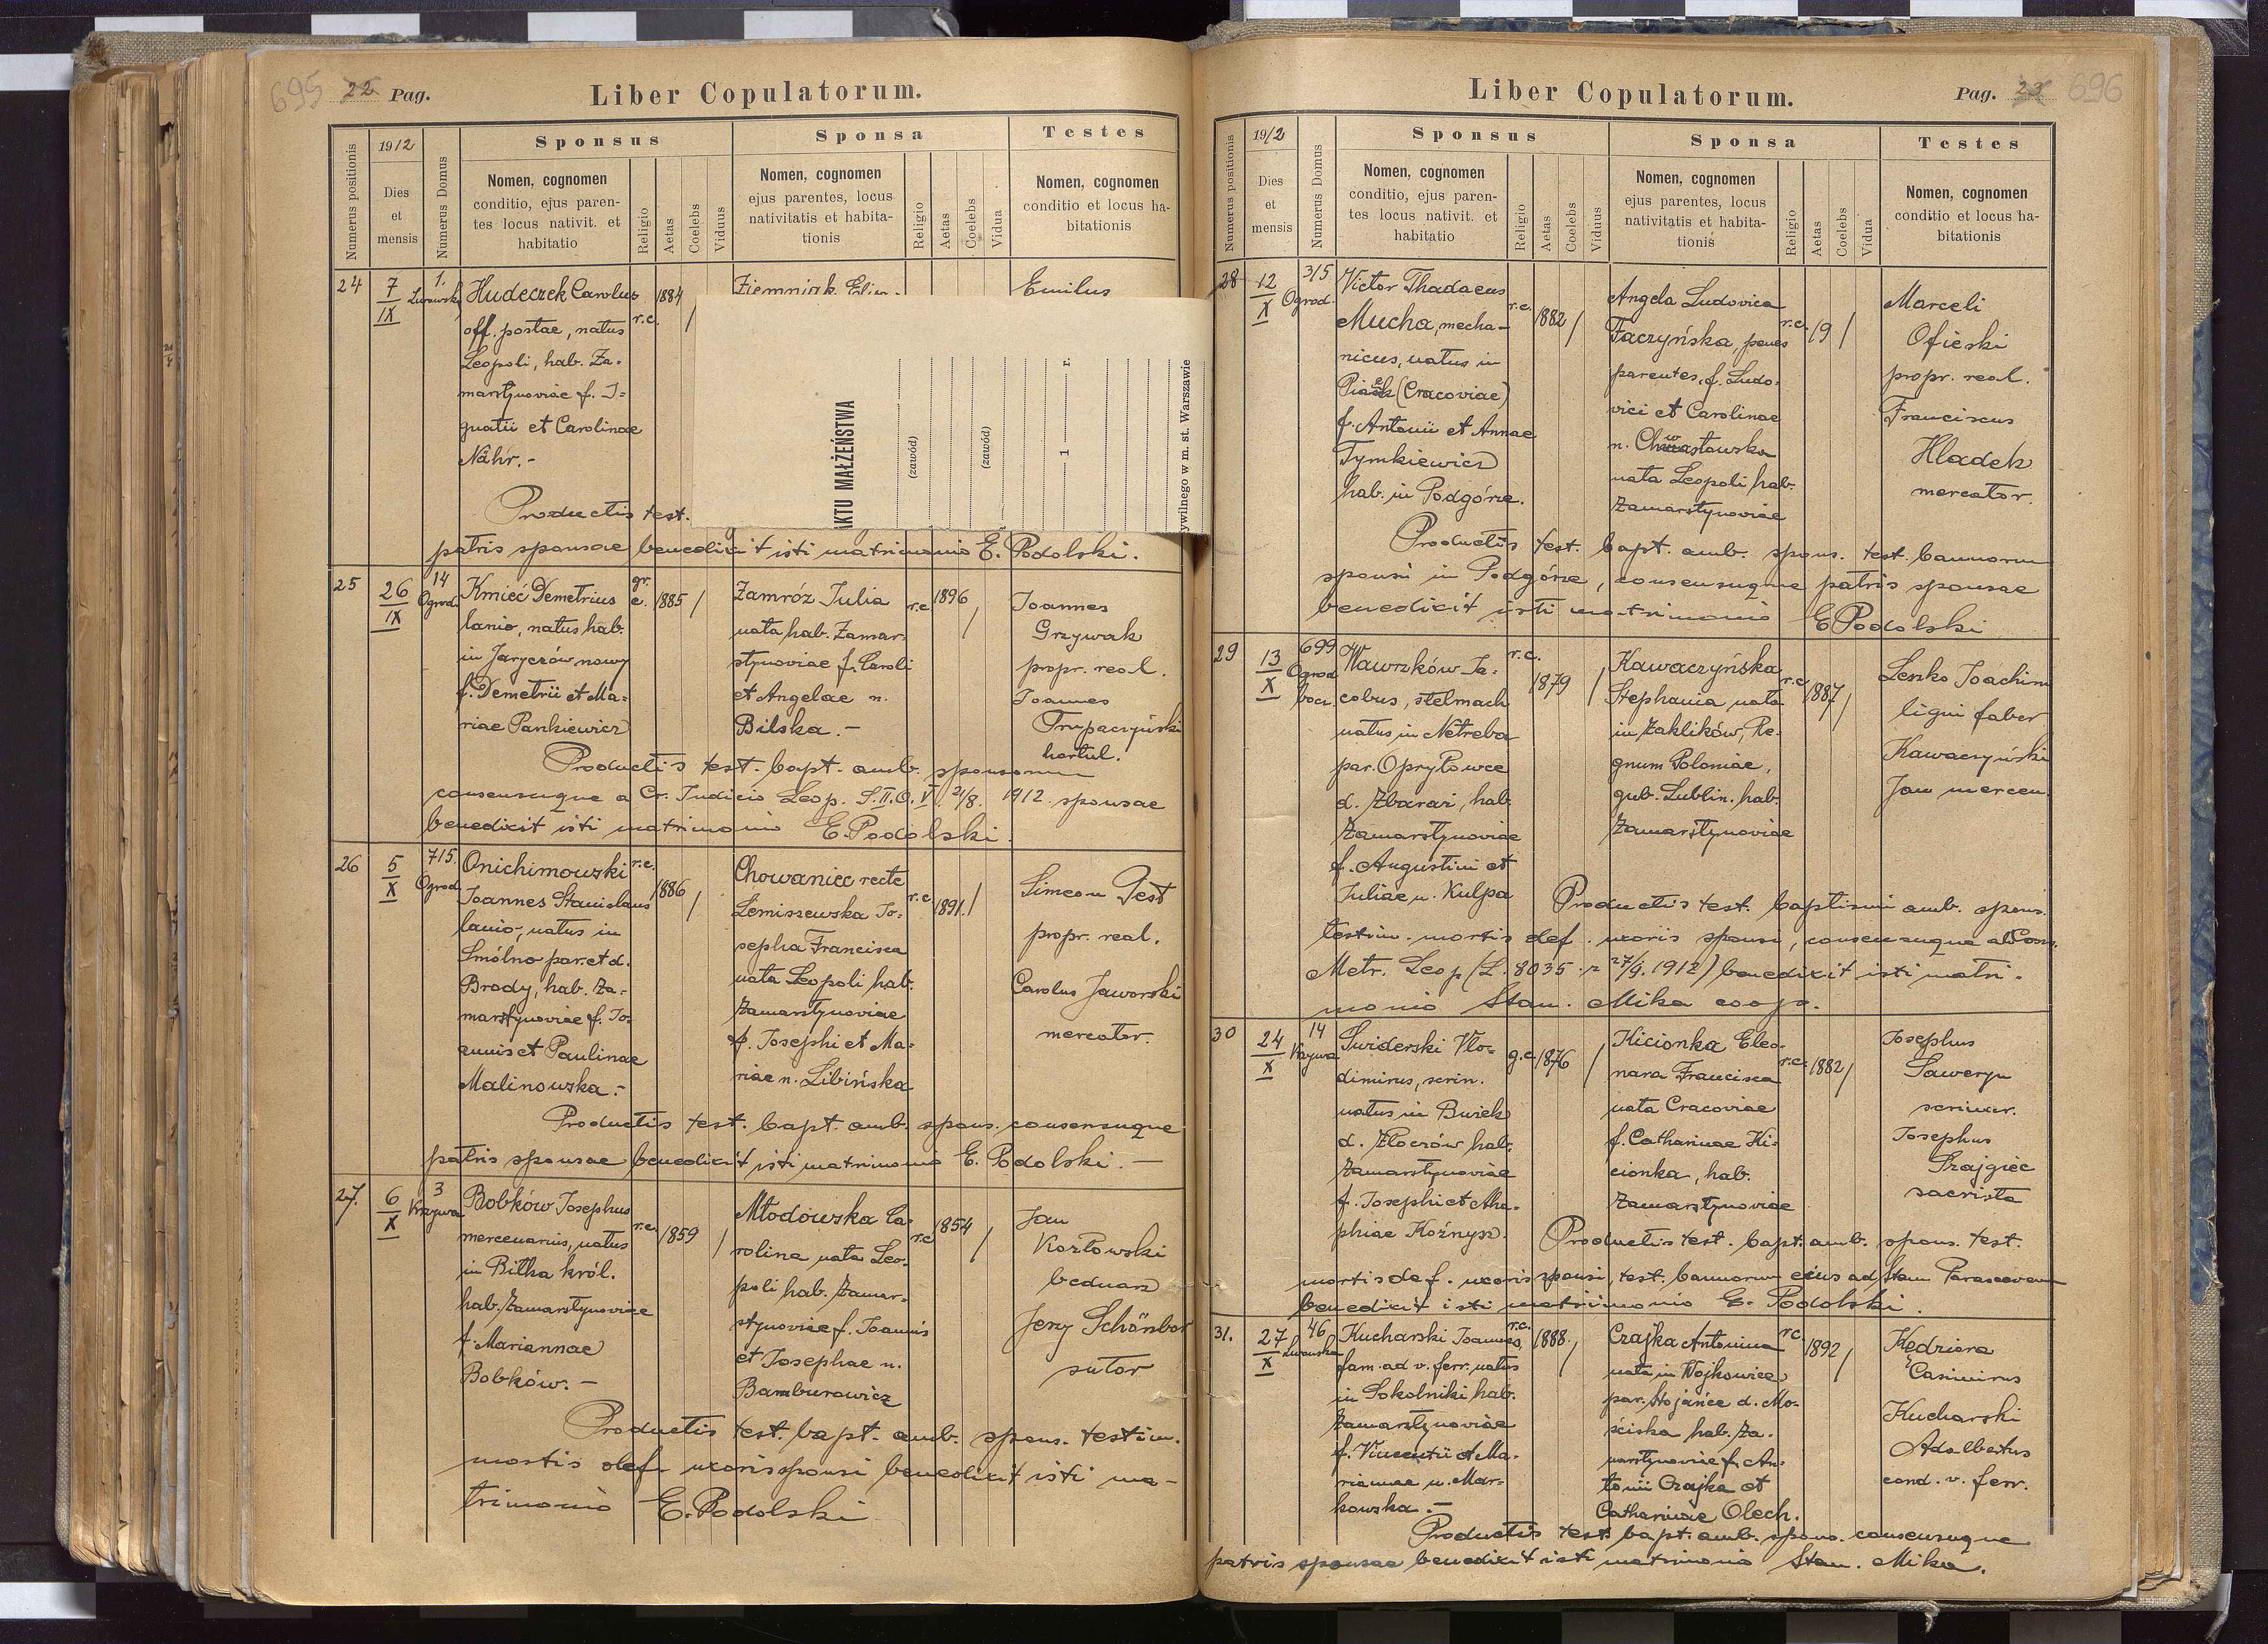 695 22 Pag.
Liber Copulatorum.
Numerus positionis
1912
Dies
et
mensis
Numerus Domus
Sponsus
Nomen, cognomen
conditio, ejus paren-
tes locus nativit. et
habitatio
Religio
Aetas
Coelebs
Viduus
Sponsa
Nomen, cognomen
ejus parentes, locus
nativitatis et habita-
tionis
Religio
Aetas
Coelebs
Vidua
Testes
Nomen, cognomen
conditio et locus ha-
bitationis
24
7
IX
1.
Lwowska
Hudeczek Carolus
off. postae, natus
Leopoli, hab. Za-
marstynoviae f. I-
gnatii et Carolinae
Nähr.-
r.c.
1884
/
Ziemniak
Emilus
AKTU MAŁŻEŃSTWA
(zawód)
(zawód)
1 r.
ywilnego w m. st. Warszawie
Productis test.
patris sponsae benedixit isti matrimonio E. Podolski.
25
26
IX
14
Ogrod.
Kmieć Demetrius
lanio, natus hab.
in Jaryczów nowy
f. Demetrii et Ma-
riae Pankiewicz
gr.
c.
1885
/
Zamróz Julia
nata hab. Zamar-
stynoviae f. Caroli
et Angelae n.
Bilska.-
r.c.
1896
/
Joannes
Grzywak
propr. real.
Joannes
Trupaczyński
hortul.
Productis test. bapt. amb. sponsorum
consensuque a Cr. Judicio Leop. S.II.O.V. 21/8. 1912 sponsae
benedixit isti matrimonio E. Podolski.
26
5
X
715.
Ogrod.
Onichimowski
Joannes Stanislaus
lanio, natus in
Smólno par. et d.
Brody, hab. Za-
marstynoviae f. Jo-
annis et Paulinae
Malinowska.-
r.c.
1886
/
Chowaniec recte
Lemiszewska Jo-
sepha Francisca
nata Leopoli hab.
Zamarstynoviae
f. Josephi et Ma-
riae n. Libińska
r.c.
1891.
/
Simeon Pest
propr. real.
Carolus Jaworski
mercator.
Productis test. bapt. amb. spons. consensuque
patris sponsae benedixit isti matrimonio E. Podolski.-
27.
6
X
3
Krzywa
Bobków Josephus
mercenarius, natus
in Biłka król.
hab. Zamarstynoviae
f. Mariannae
Bobków.-
r.c.
1859
/
Młodowska Ca-
rolina nata Leo-
poli hab. Zamar-
stynoviae f. Joannis
et Josephae n.
Bamburowicz
r.c.
1854
/
Jan
Kozłowski
bednarz
Jerzy Schönbor
sutor
Productis test. bapt. amb. spons. testim.
mortis def. uxoris sponsi benedixit isti ma-
trimonio E. Podolski
Liber Copulatorum.
Pag. 23 696
Numerus positionis
1912
Dies
et
mensis
Numerus Domus
Sponsus
Nomen, cognomen
conditio, ejus paren-
tes locus nativit. et
habitatio
Religio
Aetas
Coelebs
Viduus
Sponsa
Nomen, cognomen
ejus parentes, locus
nativitatis et habita-
tionis
Religio
Aetas
Coelebs
Vidua
Testes
Nomen, cognomen
conditio et locus ha-
bitationis
28
12
X
315
Ogrod.
Victor Thadaeus
Mucha, mecha-
nicus, natus in
Piasek (Cracoviae)
f. Antonii et Annae
Tymkiewicz
hab. in Podgórze.
r.c.
1882
/
Angela Ludovica
Faczyńska, penes
parentes, f. Ludo-
vici et Carolinae
n. Chwastowska
nata Leopoli hab.
Zamarstynoviae
r.c.
19
/
Marceli
Ofieski
propr. real.
Franciscus
Hladek
mercator
Productis test. bapt. amb. spons. test. bannorum
sponsi in Podgórze, consensuque patris sponsae
benedixit isti matrimonio E Podolski
29
13
X
699
Ogrod.
bocz.
Wawrzków Ja-
cobus, stelmach
natus in Netreba
par. Opryłowce
d. Zbaraż, hab.
Zamarstynoviae
f. Augustini et
Juliae n. Kulpa
r.c.
1879
/
Kawaczyńska
Stephania nata
in Zaklików, Re-
gnum Poloniae,
gub. Lublin. hab.
Zamarstynoviae
r.c.
1887
/
Leszko Joachim
ligni faber
Kawaczyński
Jan mercen.
Productis test. baptismi amb. spons.
testim. mortis def. uxoris sponsi, consensuque ab Cons.
Metr. Leop (L. 8035 z 27/9. 1912) benedixit isti matri-
monio Stan. Mika coop.
30
24
X
14
Krzywa
Świderski Wło-
dimirus, scrin.
natus in Bużek
d. Złoczów hab.
Zamarstynoviae
f. Josephi et Aha-
phiae Koźnysz.
g.c.
1876
/
Kicionka Eleo-
nara Francisca
nata Cracoviae
f. Catharinae Ki-
cionka, hab.
Zamarstynoviae
r.c.
1882
/
Josephus
Saweryn
scriniar.
Josephus
Szajgiec
sacrista
Productis test. bapt. amb. spons. test.
mortis def. uxoris sponsi, test. bannorum eius ad Stam Parascevam
benedixit isti matrimonio E. Podolski.
31.
27
X
46
Lwowska
Kucharski Joannes,
fam. ad v. ferr. natus
in Sokolniki hab.
Zamarstynoviae
f. Vincentii et Ma-
riannae n. Mar-
kowska.-
r.c.
1888.
/
Czajka Antonina
nata in Wojkowice
par. Stojańce d. Mo-
ściska hab. Za-
marstynoviae f. An-
tonii Czajka et
Catharinae Olech.
r.c.
1892
/
Kędziora
Casimirus
Kucharski
Adalbertus
cond. v. ferr.
Productis test. bapt. amb. spons. consensuque
patris sponsae benedixit isti matrimonio Stan. Mika.